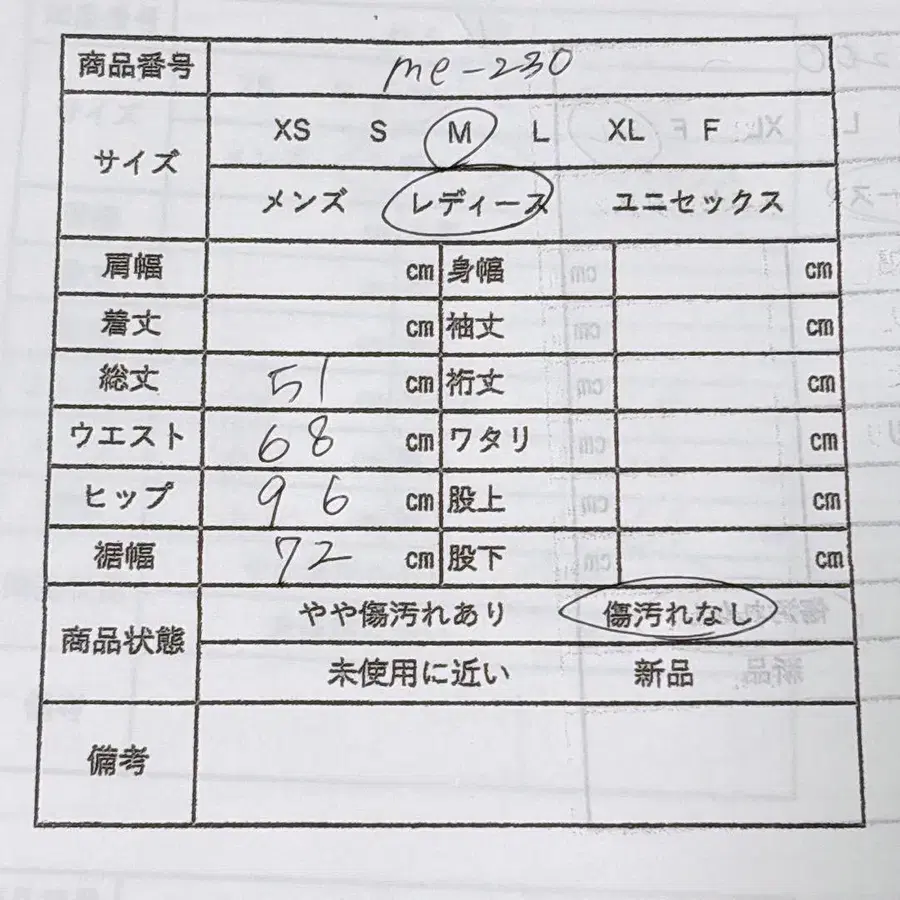 商品番号 me-230
サイズ XS S M L XL F
メンズ レディース ユニセックス
肩幅 cm 身幅 cm
着丈 cm 袖丈 cm
総丈 51 cm 裄丈 cm
ウエスト 68 cm ワタリ cm
ヒップ 96 cm 股上 cm
裾幅 72 cm 股下 cm
商品状態 やや傷汚れあり 傷汚れなし
未使用に近い 新品
備考